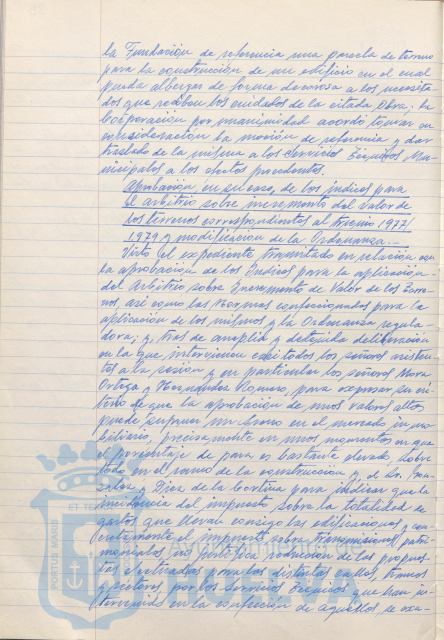 la Fundación de referencia una parcela de terreno
para la construcción de un edificio en el cual
pueda albergar de forma decorosa a los necesita-
dos que reciben los cuidados de la citada Obra; la
Corporación por unanimidad acordó tomar en
consideración la moción de referencia y dar
traslado de la misma a los Servicios Técnicos Mu-
nicipales a los efectos procedentes.
Aprobación, en su caso, de los índices para
el arbitrio sobre incremento del Valor de
los terrenos correspondientes al trienio 1977/
1979 y modificación de la Ordenanza.-
Visto el expediente tramitado en relación con
la aprobación de los Indices para la aplicación
del Arbitrio sobre Incremento de Valor de los Terre-
nos, así como las Normas confeccionadas para la
aplicación de los mismos y la Ordenanza regula-
dora; y, tras de amplia y detenida deliberación
en la que intervienen casi todos los señores asisten-
tes a la sesión y en particular los señores Mora
Ortega y Hernández Romero, para exponer su cri-
terio de que la aprobación de unos valores altos
puede suponer un freno en el mercado inmo-
biliario, precisamente en unos momentos en que
el porcentaje de paro es bastante elevado, sobre
todo en el ramo de la construcción y el Sr. Gon-
zález y Díaz de la Cortina para indicar que la
incidencia del impuesto sobre la totalidad de
gastos que llevan consigo las edificaciones y con-
cretamente el impuesto sobre transmisiones patri-
moniales no justifica reducción de las propues-
tas efectuadas para las distintas calles, tramos
y sectores, por los Servicios Técnicos que han in-
tervenido en la confección de aquellos, se exa-
PORTUS MARIS
ET TERRAE